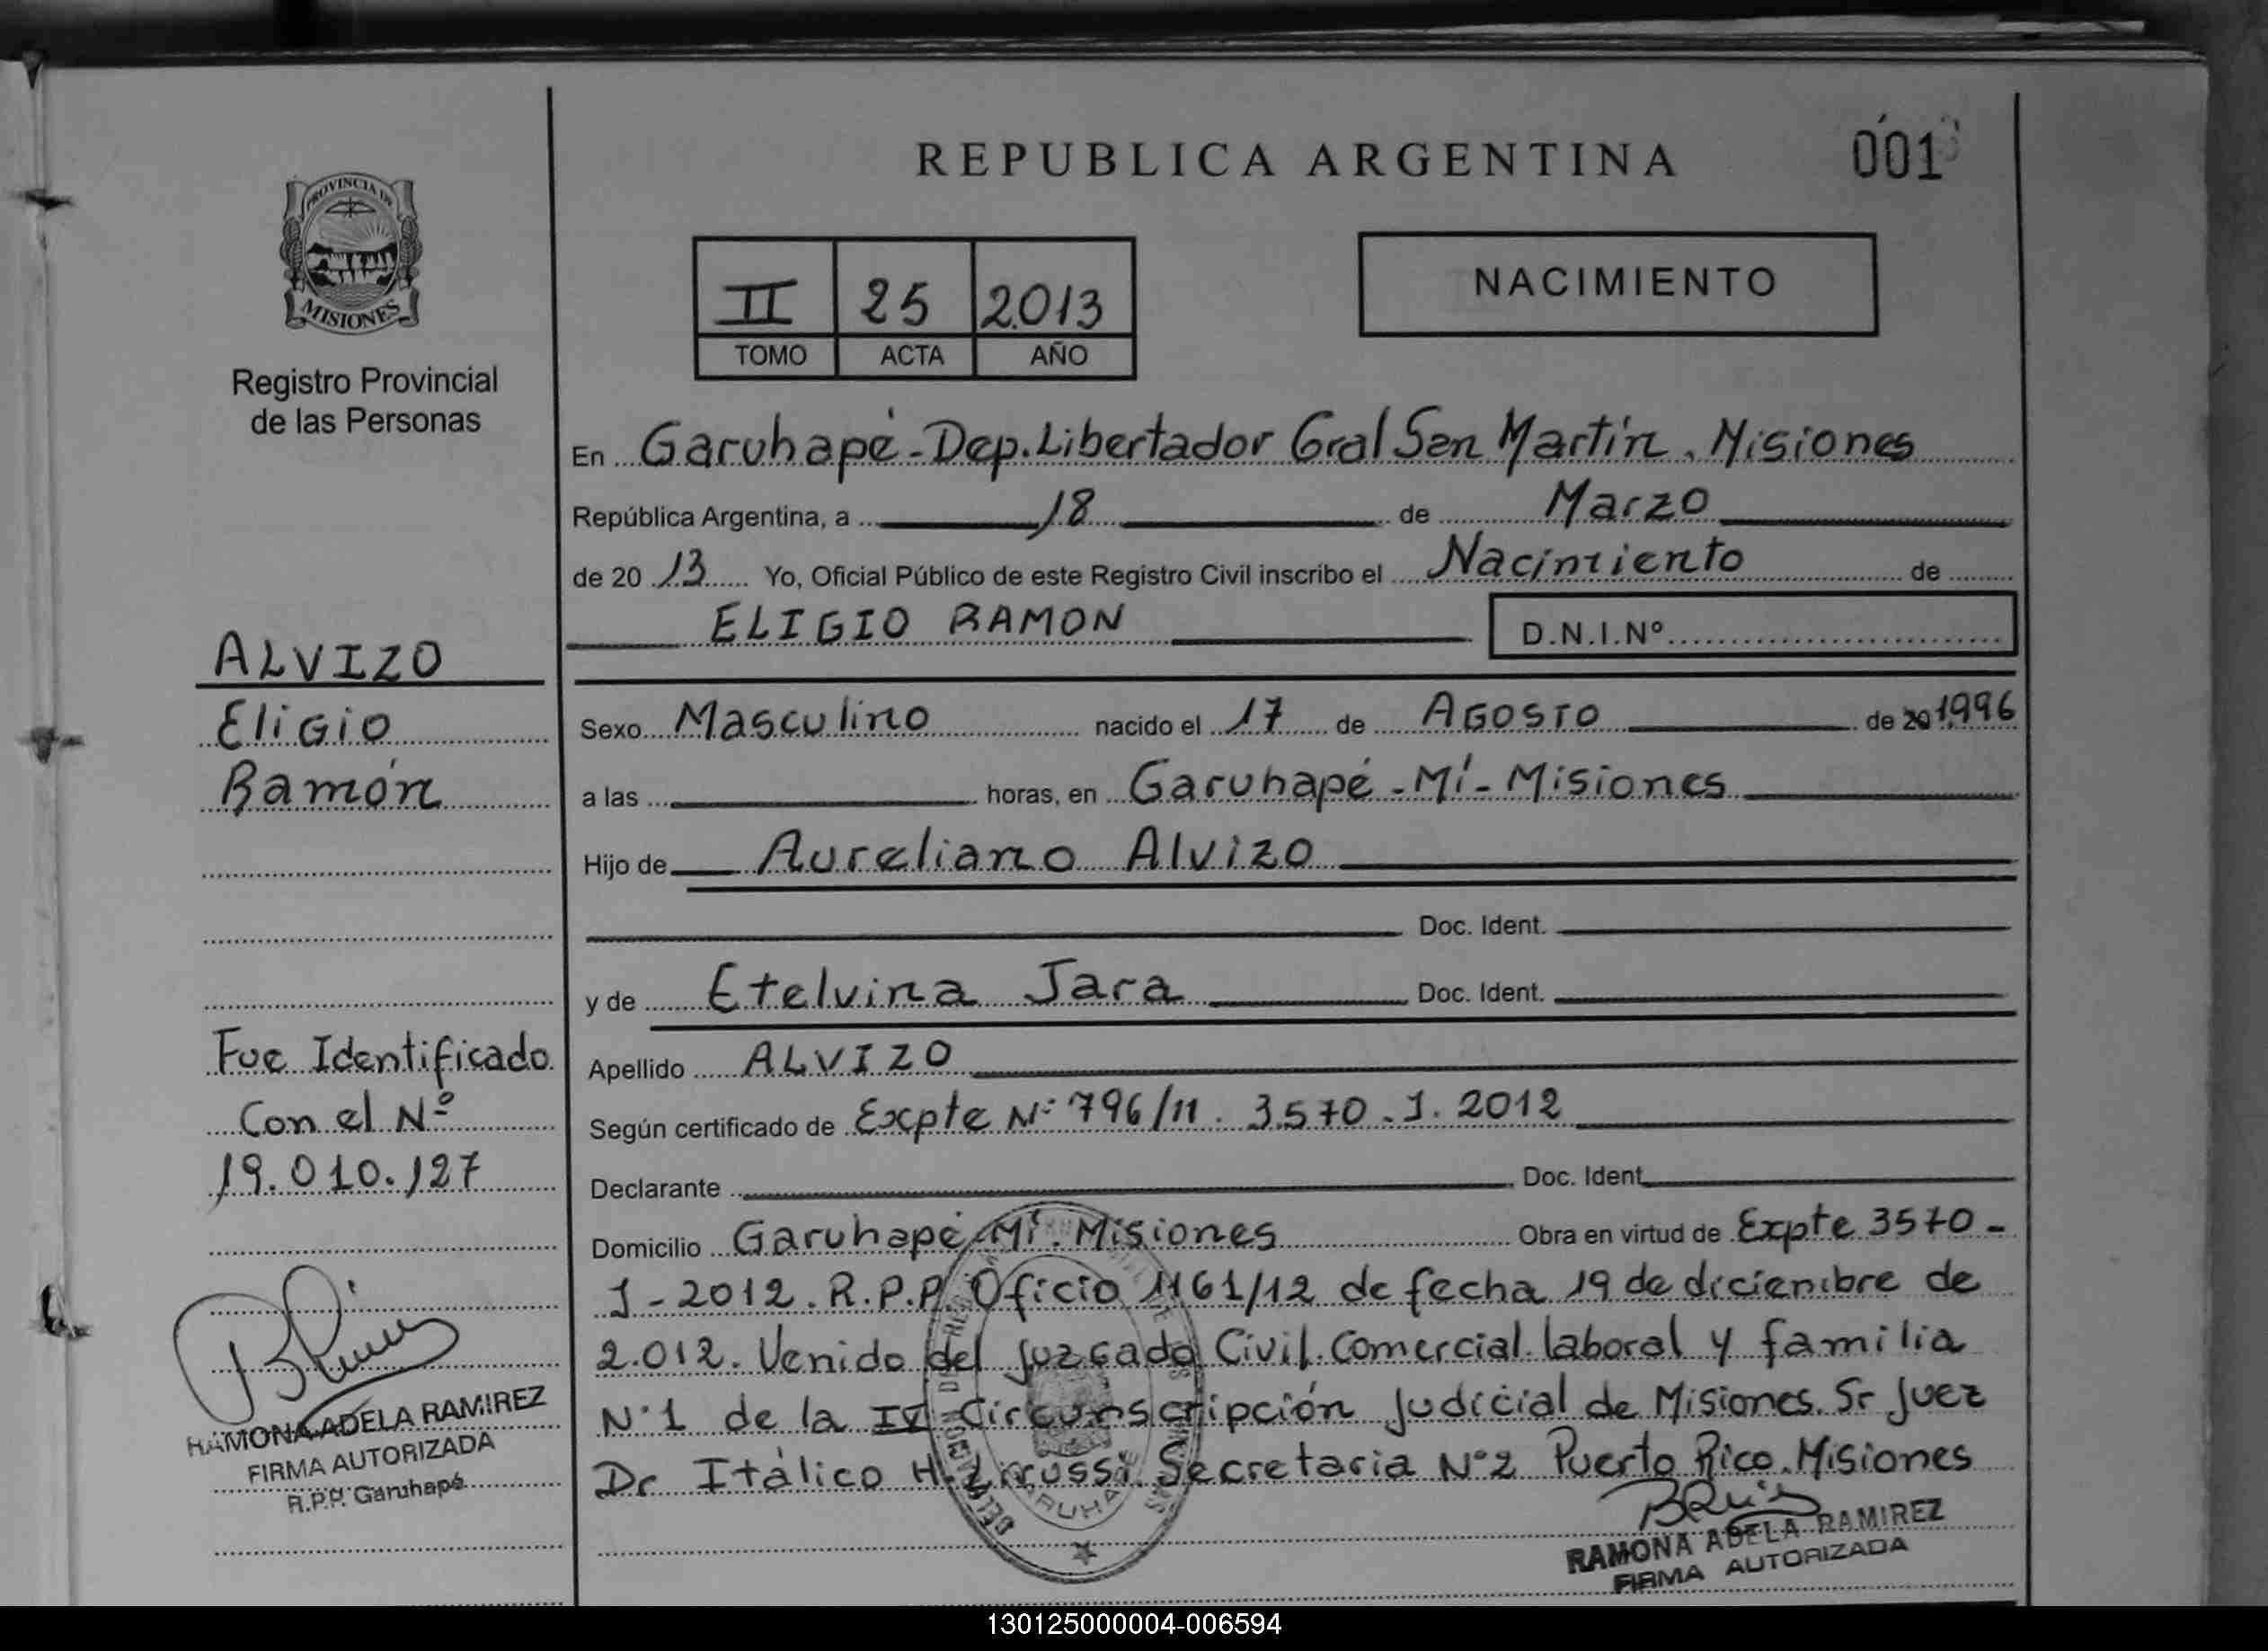 REPUBLICA ARGENTINA
001
PROVINCIA DE
MISIONES
Registro Provincial
de las Personas
II 25 2013
TOMO ACTA AÑO
NACIMIENTO
En Garuhapé - Dep. Libertador Gral San Martín. Misiones
República Argentina, a 18 de Marzo
de 20 13 Yo, Oficial Público de este Registro Civil inscribo el Nacimiento de
ELIGIO RAMON D.N.I.Nº
ALVIZO
Eligio
Ramón
Sexo Masculino nacido el 17 de AGOSTO de 20 1996
a las horas, en Garuhapé - Mí - Misiones
Hijo de Aureliano Alvizo
Doc. Ident.
y de Etelvina Jara Doc. Ident.
Apellido ALVIZO
Según certificado de Expte Nº 796/11. 3570 - J. 2012
Declarante Doc. Ident
Fue Identificado
Con el Nº
19.010.127
Domicilio Garuhapé Mí. Misiones Obra en virtud de Expte 3570 -
J - 2012. R.P.P. Oficio 1161/12 de fecha 19 de diciembre de
2.012. Venido del Juzgado Civil. Comercial. laboral y familia
Nº1 de la IV Circunscripción Judicial de Misiones. Sr Juez
Dr Itálico H. Secretaria Nº2 Puerto Rico. Misiones
RAMONA ADELA RAMIREZ
FIRMA AUTORIZADA
R.P.P. Garuhapé
RAMONA ADELA RAMIREZ
FIRMA AUTORIZADA
130125000004-006594